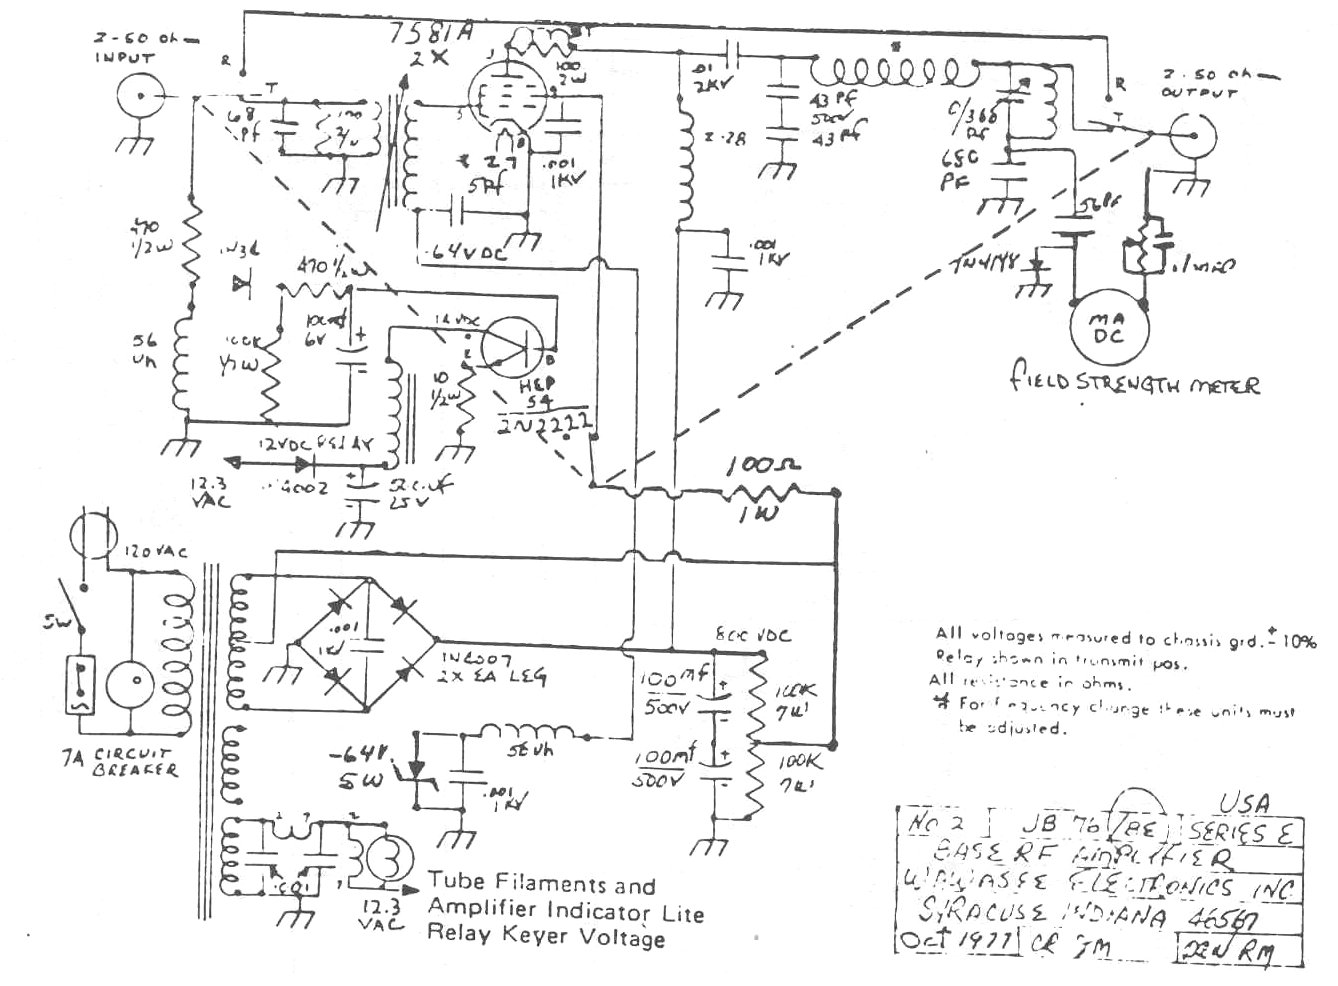 2-50 Oh-
INPUT
R
T
68
Pf
7581A
2X
T
100
2W
5
8
* 27
5Pf
.001
1KV
-64VDC
.01
2KV
43 Pf
500V
43 Pf
*
Z-28
.001
1KV
C/366
Pf
680
PF
2-50 Oh-
OUTPUT
R
T
56Pf
1N4148
MA
DC
FIELD STRENGTH METER
470
1/2W
56
Uh
470 1/2W
100K
1/2W
6V
10
1/2W
B
HEP
54
2N2222
12VDC RELAY
12.3
VAC
25V
100Ω
1W
120VAC
SW
7A CIRCUIT
BREAKER
.001
1KV
1N4007
2X EA LEG
800 VDC
100mf
500V
100K
7W
100mf
500V
100K
7W
-64V
5W
56Uh
.001
1KV
.001
12.3
VAC
Tube Filaments and
Amplifier Indicator Lite
Relay Keyer Voltage
All voltages measured to chassis grd. ± 10%
Relay shown in transmit pos.
All resistance in ohms.
* For frequency change these units must
be adjusted.
USA
No 2 JB 76/BE SERIES E
BASE RF AMPLIFIER
WAWASEE ELECTRONICS INC
SYRACUSE INDIANA 46567
Oct 1977 CR JM RM